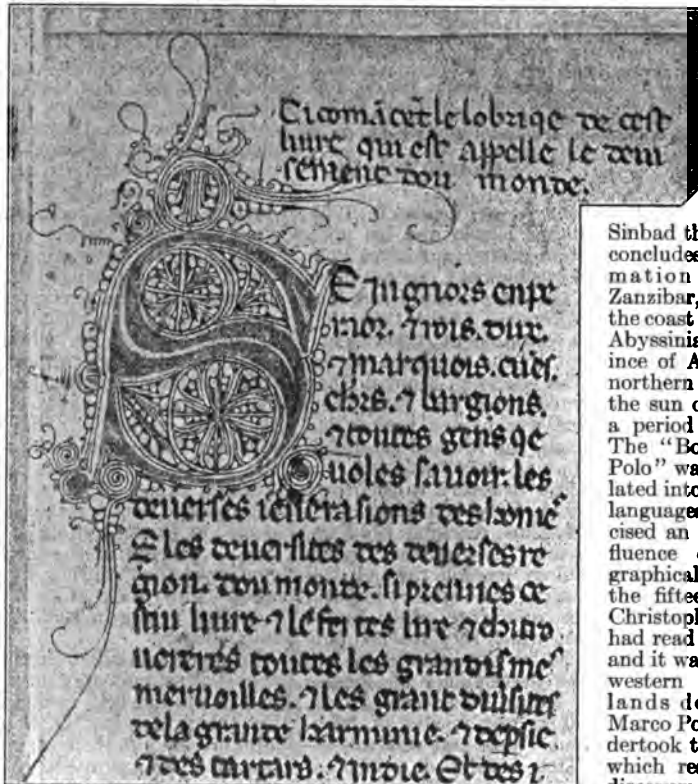 Ci comācet le lobriqe de cest
liure qui est appelle le deui
sement dou monde.
Seingnors enpe
raor. ⁊ rois. dux.
⁊ marquois. cues.
chrs. ⁊burgions.
⁊toutes gens qe
uoles sauoir. les
deuerses ienerasions des home
E les deuersites des deuerses re
gion. dou monde. si prennes ce
stui liure ⁊ le feites lire ⁊ chi
trouereres toutes les grandisme
meruoilles. ⁊ les grant
de la grante harminie. ⁊ de psie
⁊ des tartars. ⁊ indie. Et des
Sinbad th
concludes
mation
Zanzibar,
the coast
Abyssinia
ince of A
northern
the sun d
a period
The “Bo
Polo” wa
lated into
languages
cised an
fluence
graphical
the fiftee
Christoph
had read
and it wa
western
lands de
Marco Po
dertook t
which re